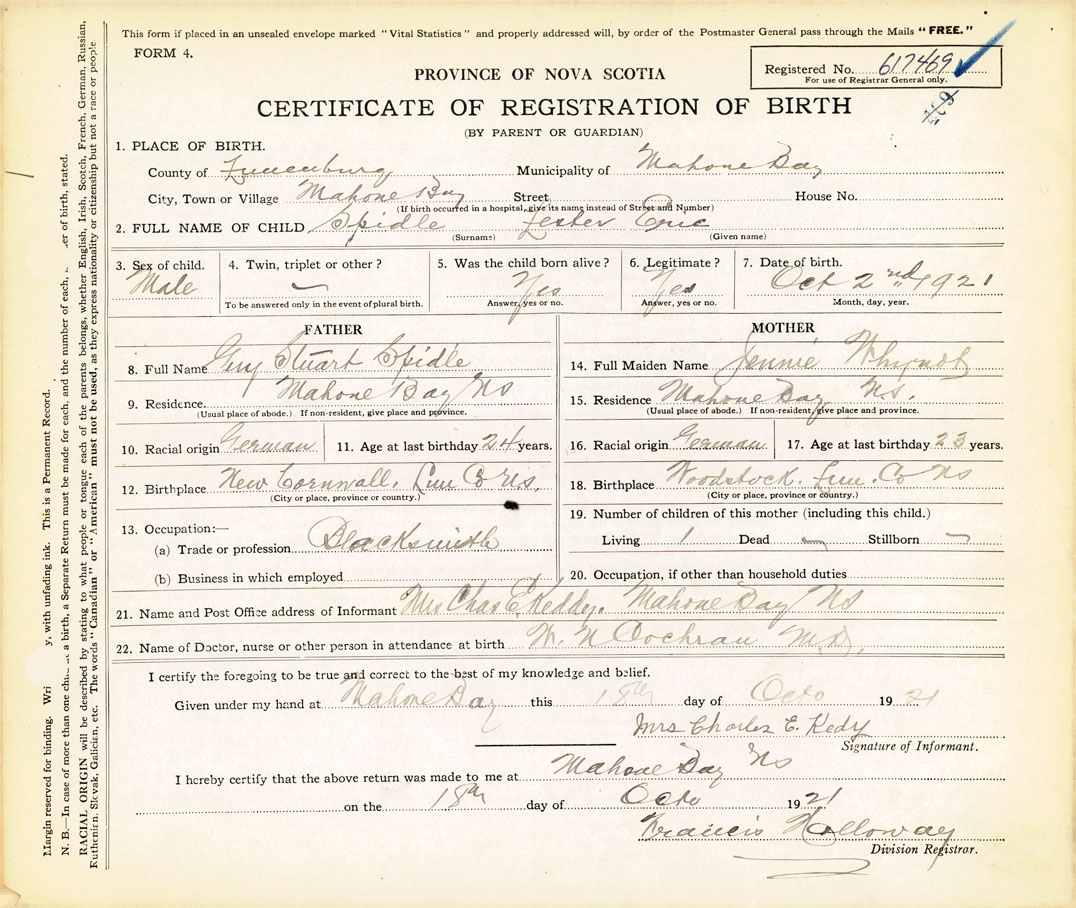 This form if placed in an unsealed envelope marked "Vital Statistics" and properly addressed will, by order of the Postmaster General pass through the Mails "FREE."
FORM 4.
Registered No. 617469
For use of Registrar General only.
PROVINCE OF NOVA SCOTIA
CERTIFICATE OF REGISTRATION OF BIRTH
(BY PARENT OR GUARDIAN)
1. PLACE OF BIRTH.
County of Lunenburg Municipality of Mahone Bay
City, Town or Village Mahone Bay Street House No.
(If birth occurred in a hospital, give its name instead of Street and Number)
2. FULL NAME OF CHILD Spidle Lester Eric
(Surname) (Given name)
3. Sex of child. 4. Twin, triplet or other? 5. Was the child born alive? 6. Legitimate? 7. Date of birth.
Male — Yes Yes Oct 2nd 1921
To be answered only in the event of plural birth. Answer, yes or no. Answer, yes or no. Month, day, year.
FATHER
8. Full Name Guy Stuart Spidle
9. Residence. Mahone Bay NS
(Usual place of abode.) If non-resident, give place and province.
10. Racial origin German 11. Age at last birthday 24 years.
12. Birthplace New Cornwall. Lun Co N.S.
(City or place, province or country.)
13. Occupation:—
(a) Trade or profession Blacksmith
(b) Business in which employed
MOTHER
14. Full Maiden Name Jennie Whynot
15. Residence Mahone Bay N.S.
(Usual place of abode.) If non-resident, give place and province.
16. Racial origin German 17. Age at last birthday 23 years.
18. Birthplace Woodstock. Lun. Co NS
(City or place, province or country.)
19. Number of children of this mother (including this child.)
Living 1 Dead — Stillborn —
20. Occupation, if other than household duties
21. Name and Post Office address of Informant Mrs Chas E Keddy. Mahone Bay NS
22. Name of Doctor, nurse or other person in attendance at birth W. N Cochran M.D.
I certify the foregoing to be true and correct to the best of my knowledge and belief.
Given under my hand at Mahone Bay this 18th day of Octo 1921
Mrs Charles E. Kedy
Signature of Informant.
I hereby certify that the above return was made to me at Mahone Bay NS
on the 18th day of Octo 1921
Francis Holloway
Division Registrar.
Margin reserved for binding. Wri y, with unfading ink. This is a Permanent Record.
N. B.—In case of more than one a birth, a Separate Return must be made for each, and the number of each, of birth, stated.
RACIAL ORIGIN will be described by stating to what people or tongue each of the parents belongs, whether English, Irish, Scotch, French, German, Russian,
Ruthenian, Slovak, Galician, etc. The words "Canadian" or "American" must not be used, as they express nationality or citizenship but not a race or people